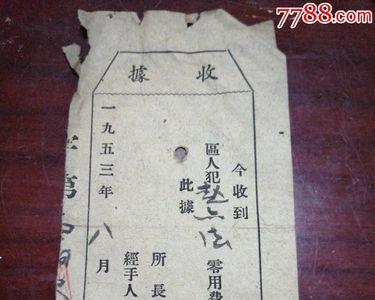 7788.com
收據
今收到
區人犯 零用費
此據
所長
經手人
一九五三年八月
字第